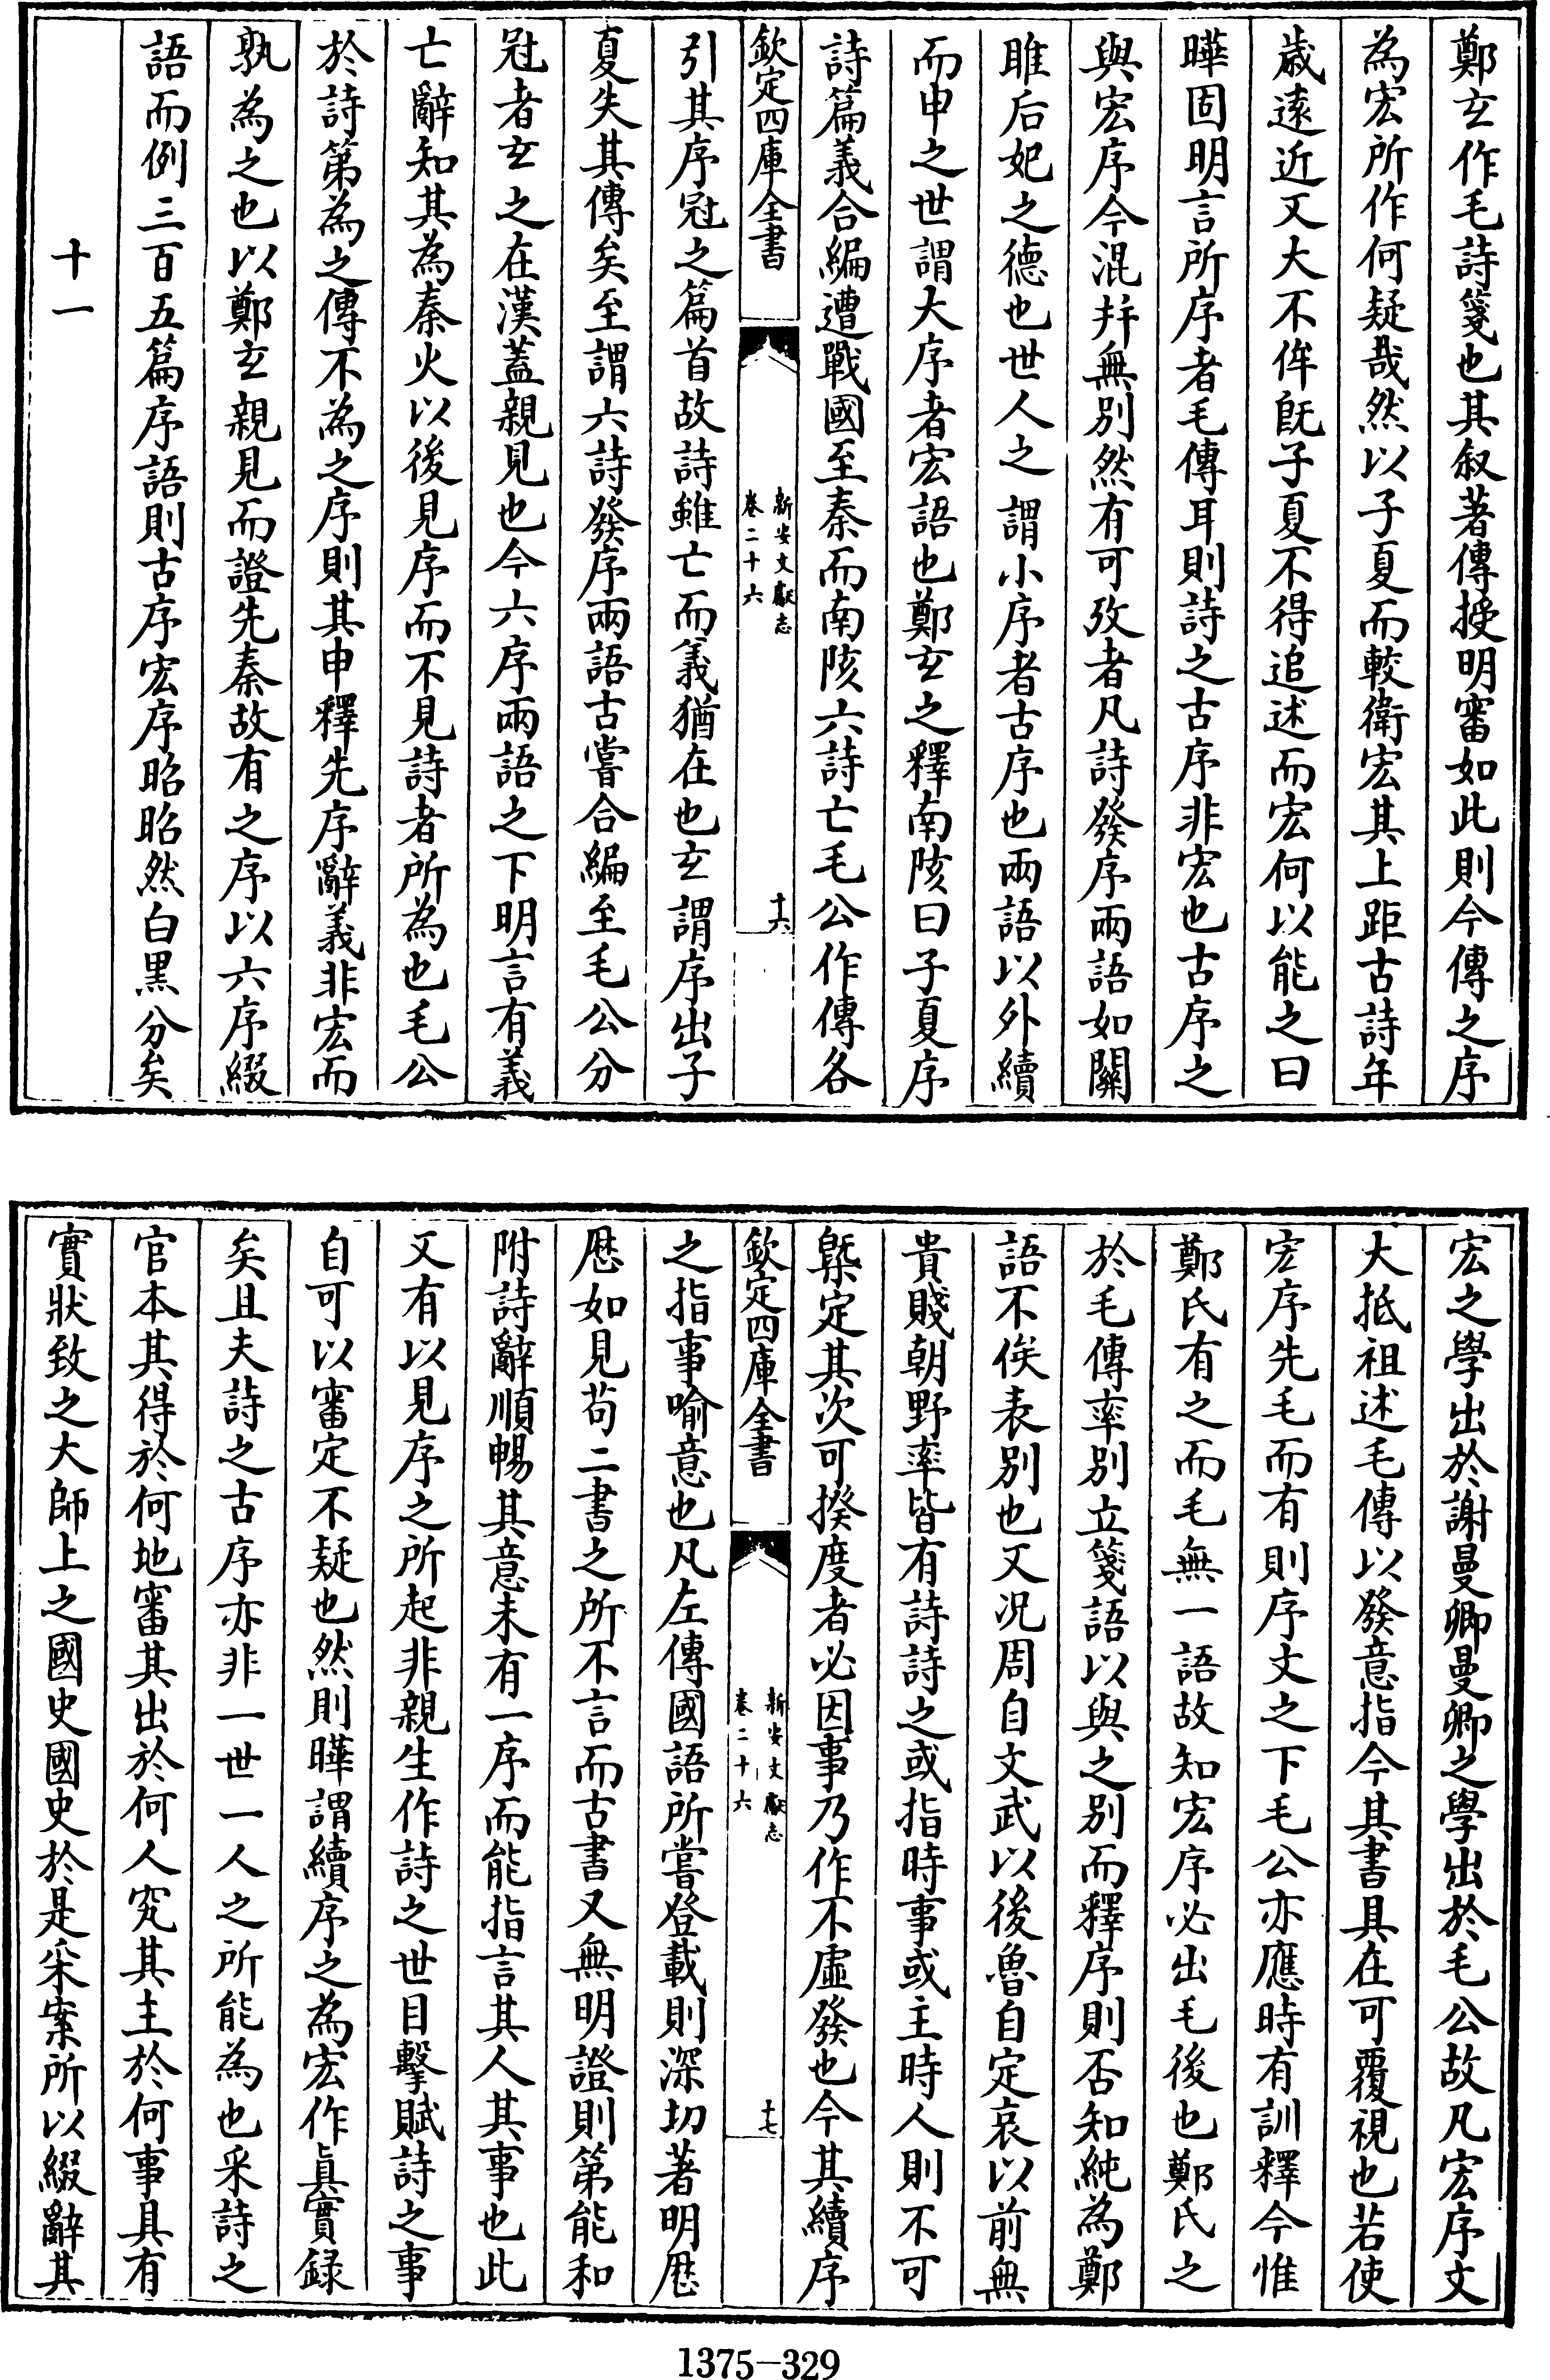 鄭玄作毛詩箋也其叙著傳授明審如此則今傳之序
為宏所作何疑哉然以子夏而較衛宏其上距古詩年
歲遠近又大不侔旣子夏不得追述而宏何以能之曰
曄固明言所序者毛傳耳則詩之古序非宏也古序之
與宏序今混并無别然有可攷者凡詩發序兩語如關
雎后妃之德也世人之謂小序者古序也兩語以外續
而申之世謂大序者宏語也鄭玄之釋南陔曰子夏序
詩篇義合編遭戰國至秦而南陔六詩亡毛公作傳各
欽定四庫全書
新安文獻志
卷二十六
十六
引其序冠之篇首故詩雖亡而義猶在也玄謂序出子
夏失其傳矣至謂六詩發序兩語古嘗合編至毛公分
冠者玄之在漢蓋親見也今六序兩語之下明言有義
亡辭知其為秦火以後見序而不見詩者所為也毛公
於詩第為之傳不為之序則其申釋先序辭義非宏而
孰為之也以鄭玄親見而證先秦故有之序以六序綴
語而例三百五篇序語則古序宏序昭昭然白黑分矣
十一
宏之學出於謝曼卿曼卿之學出於毛公故凡宏序文
大抵祖述毛傳以發意指今其書具在可覆視也若使
宏序先毛而有則序文之下毛公亦應時有訓釋今惟
鄭氏有之而毛無一語故知宏序必出毛後也鄭氏之
於毛傳率别立箋語以與之别而釋序則否知純為鄭
語不俟表别也又况周自文武以後魯自定哀以前無
貴賤朝野率皆有詩詩之或指時事或主時人則不可
槩定其次可揆度者必因事乃作不虛發也今其續序
欽定四庫全書
新安文獻志
卷二十六
十七
之指事喻意也凡左傳國語所嘗登載則深切著明歷
歷如見苟二書之所不言而古書又無明證則第能和
附詩辭順暢其意未有一序而能指言其人其事也此
又有以見序之所起非親生作詩之世目擊賦詩之事
自可以審定不疑也然則曄謂續序之為宏作眞實録
矣且夫詩之古序亦非一世一人之所能為也采詩之
官本其得於何地審其出於何人究其主於何事具有
實狀致之大師上之國史國史於是采案所以綴辭其
1375-329